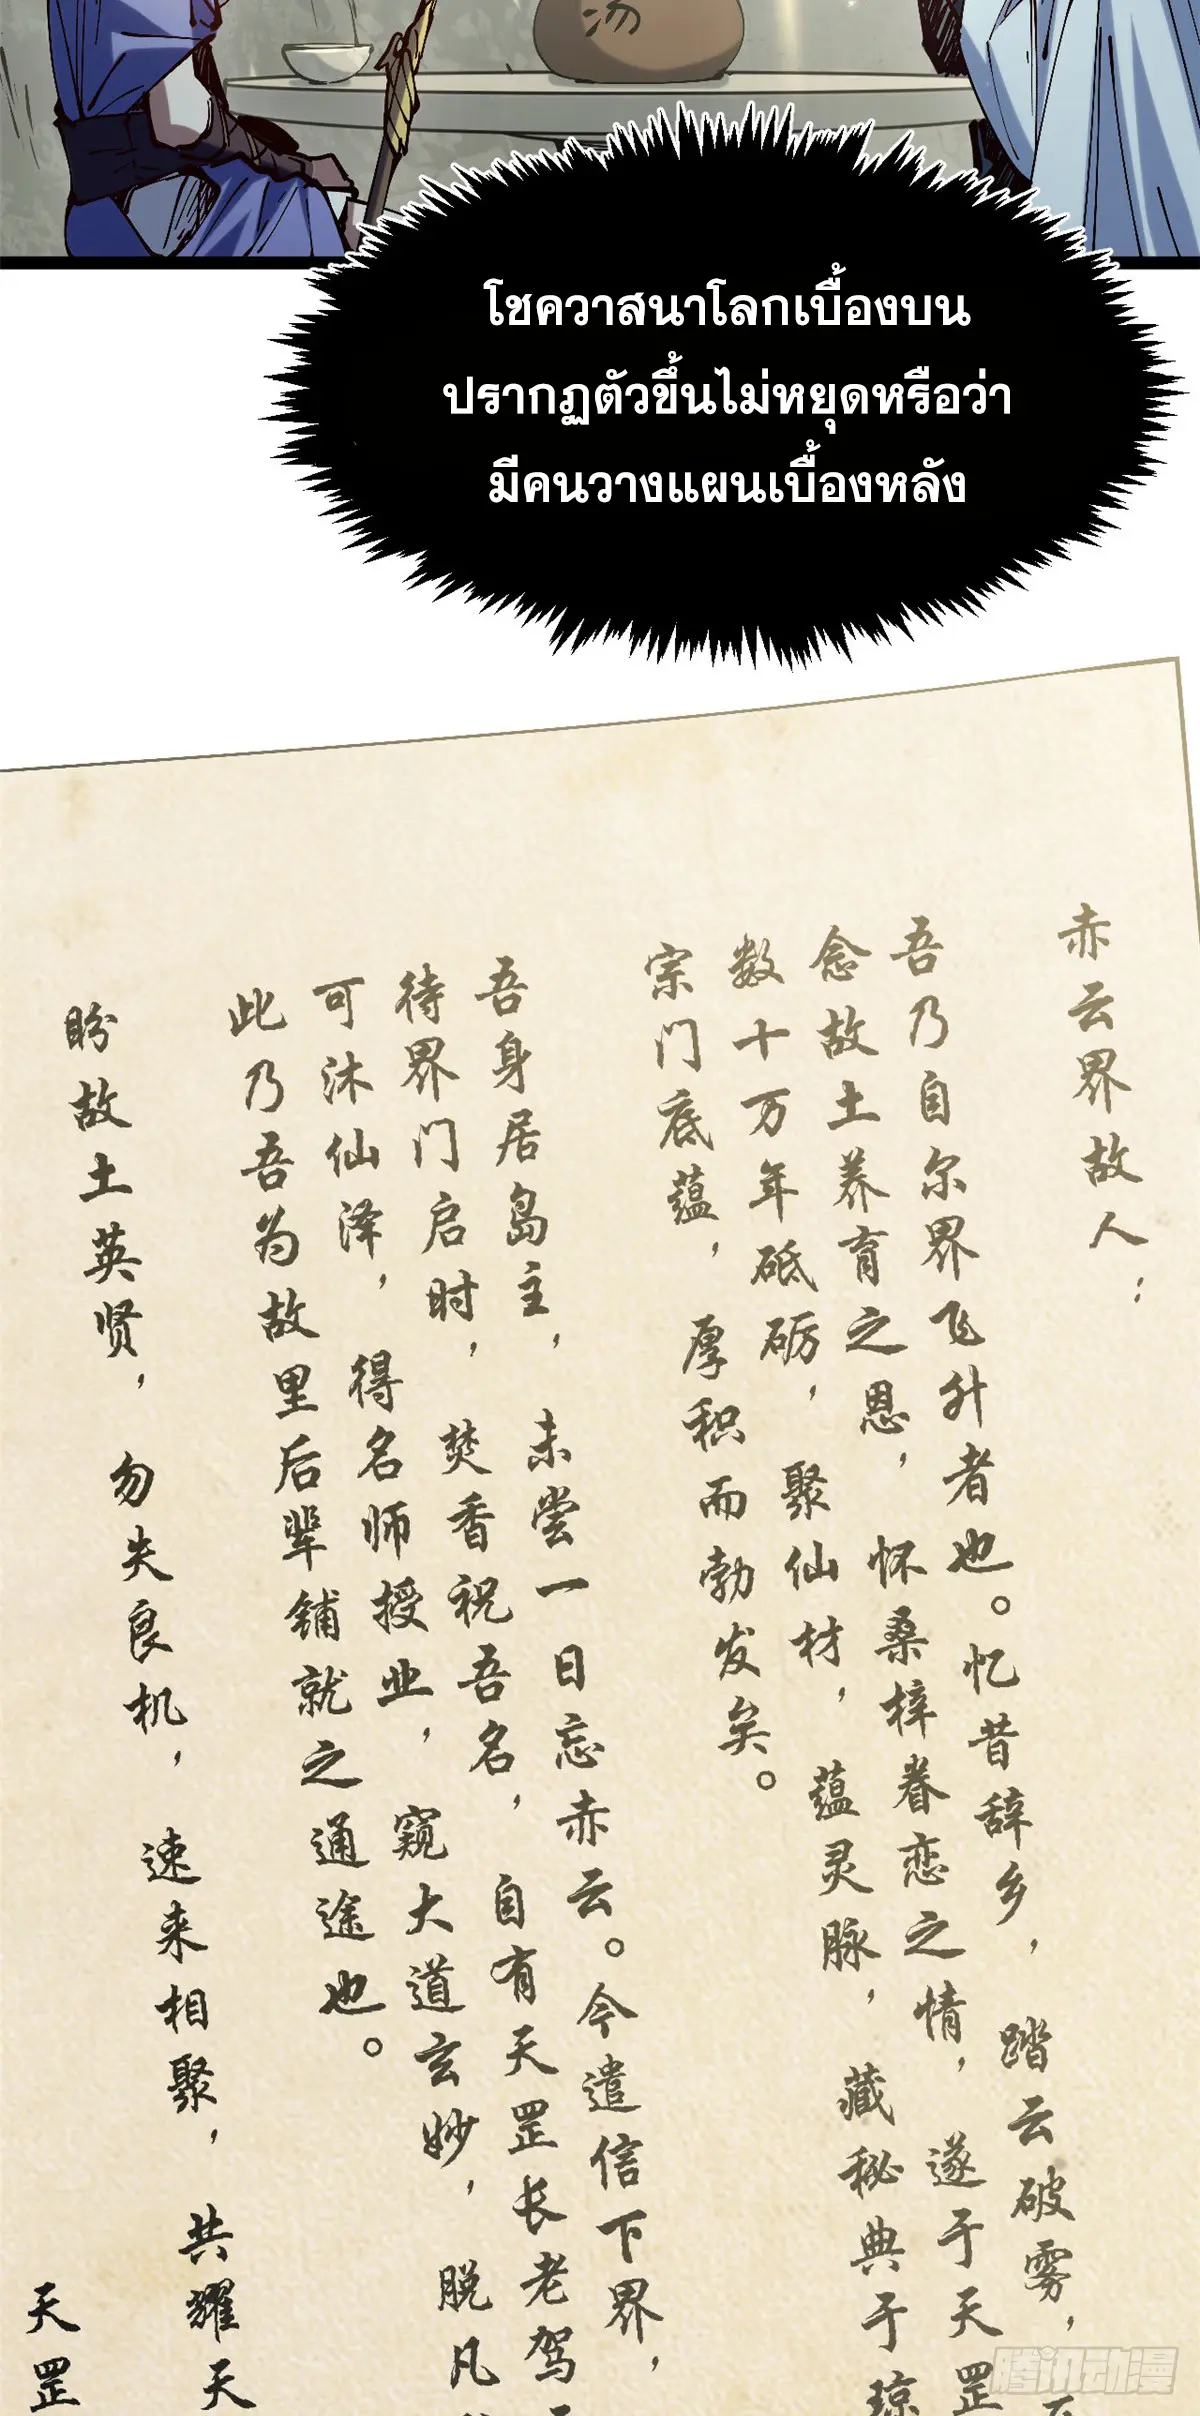 汤
โชควาสนาโลกเบื้องบน
ปรากฏตัวขึ้นไม่หยุดหรือว่า
มีคนวางแผนเบื้องหลัง
赤云界故人：
吾乃自尔界飞升者也。忆昔辞乡，踏云破雾，
念故土养育之恩，怀桑梓眷恋之情，遂于天罡
数十万年砥砺，聚仙材，蕴灵脉，藏秘典于琼
宗门底蕴，厚积而勃发矣。
吾身居岛主，未尝一日忘赤云。今遣信下界，
待界门启时，焚香祝吾名，自有天罡长老驾
可沐仙泽，得名师授业，窥大道玄妙，脱凡
此乃吾为故里后辈铺就之通途也。
盼故土英贤，勿失良机，速来相聚，共耀天
天罡
腾讯动漫